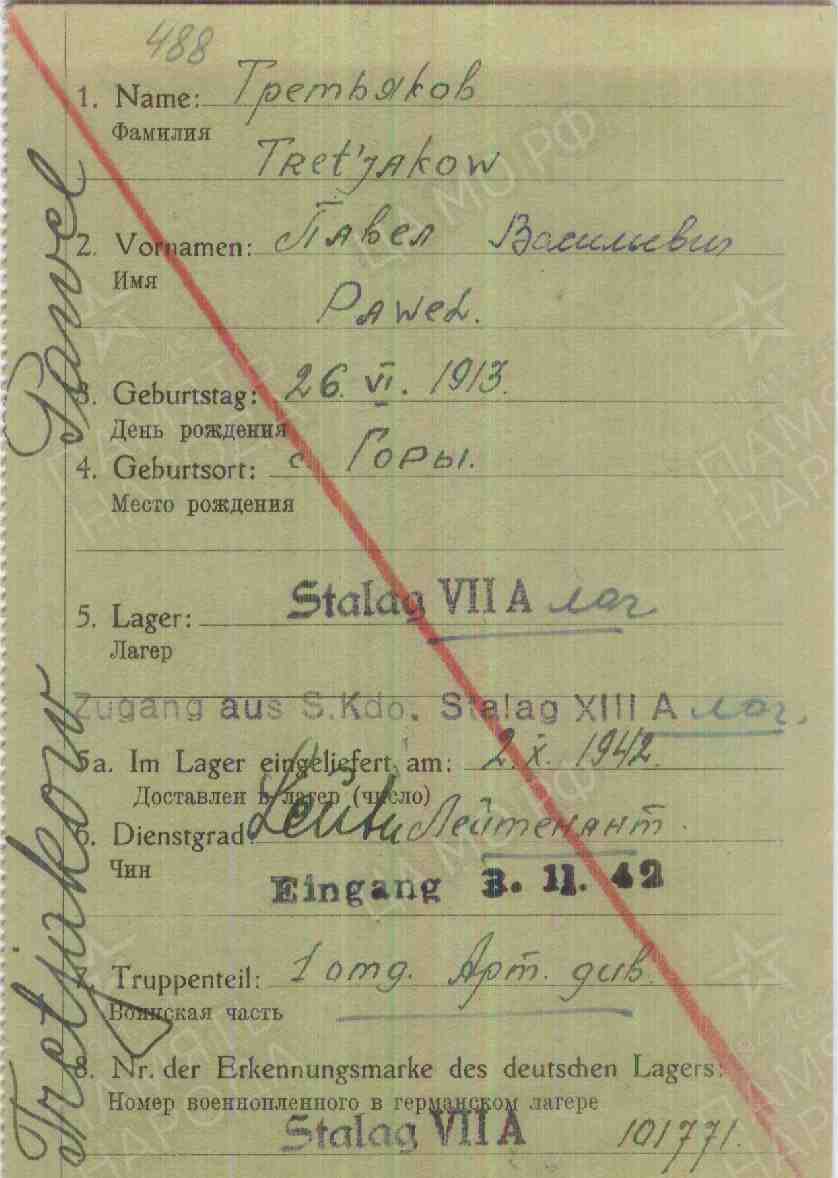 488
1. Name: Третьяков
Фамилия
Tret'jakow
2. Vornamen: Павел Васильевич
Имя
Pawel.
3. Geburtstag: 26. VI. 1913.
День рождения
4. Geburtsort: с. Горы.
Место рождения
5. Lager: Stalag VII A лаг
Лагер
Zugang aus S.Kdo. Stalag XIII A лаг.
5a. Im Lager eingeliefert am: 2. X. 1942.
Доставлен в лагер (число)
6. Dienstgrad: Лейтенант.
Чин
Eingang 3. 11. 42
7. Truppenteil: 1 отд. Арт. див.
Воинская часть
8. Nr. der Erkennungsmarke des deutschen Lagers:
Номер военнопленного в германском лагере
Stalag VII A 101771.
Tretjakow Pawel
ЦА МО.РФ
ПАМЯТЬ
НАРОДА